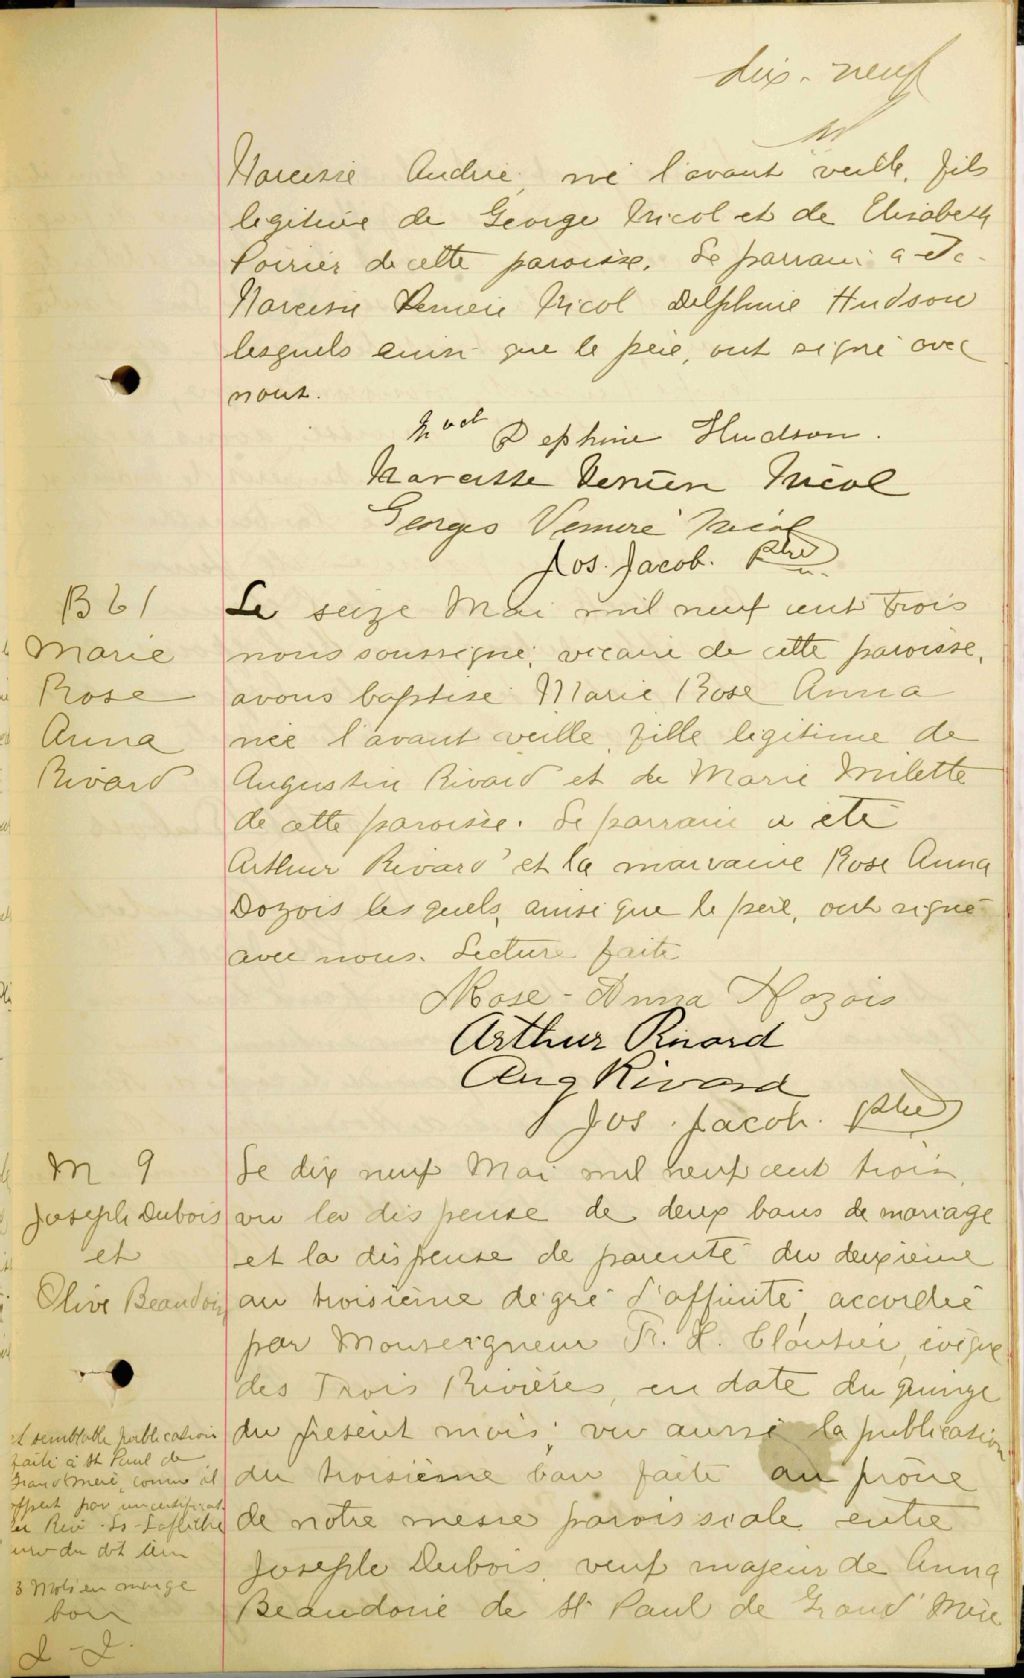 dix-neuf
Narcisse André, né l'avant veille, fils
legitime de George Nicol et de Elisabeth
Poirier de cette paroisse. Le parrain a été
Narcisse Nicol Delphine Hudson
lesquels ainsi que le père, ont signé avec
nous.
Delphine Hudson.
Narcisse Nicol
Georges Nicol
Jos. Jacob. ptre
B 61
Marie
Rose
Anna
Rivard
Le seize Mai mil neuf cent trois
nous soussigné, vicaire de cette paroisse,
avons baptisé Marie Rose Anna
née l'avant veille, fille legitime de
Augustin Rivard et de Marie Milette
de cette paroisse. Le parrain a été
Arthur Rivard et la marraine Rose Anna
Dozois lesquels, ainsi que le père, ont signé
avec nous. Lecture faite
Rose-Anna Dozois
Arthur Rivard
Aug Rivard
Jos. Jacob. ptre
M 9
Joseph Dubois
et
Olive Beaudoin
Le dix neuf Mai mil neuf cent trois,
vu la dispense de deux bans de mariage
et la dispense de parenté du deuxième
au troisième degré d'affinité, accordée
par Monseigneur F. X. Cloutier, évêque
des Trois Rivières, en date du quinze
du présent mois; vu aussi la publication
du troisième ban faite au prône
de notre messe paroissiale entre
Joseph Dubois, veuf majeur de Anna
Beaudoin de St Paul de Grand'Mère
et semblable publication
faite à St Paul de
Grand'Mère, comme il
appert par un certificat
du Rév. Ls. Laflèche
curé du dit lieu
3 Mots en marge
bon
J-J.